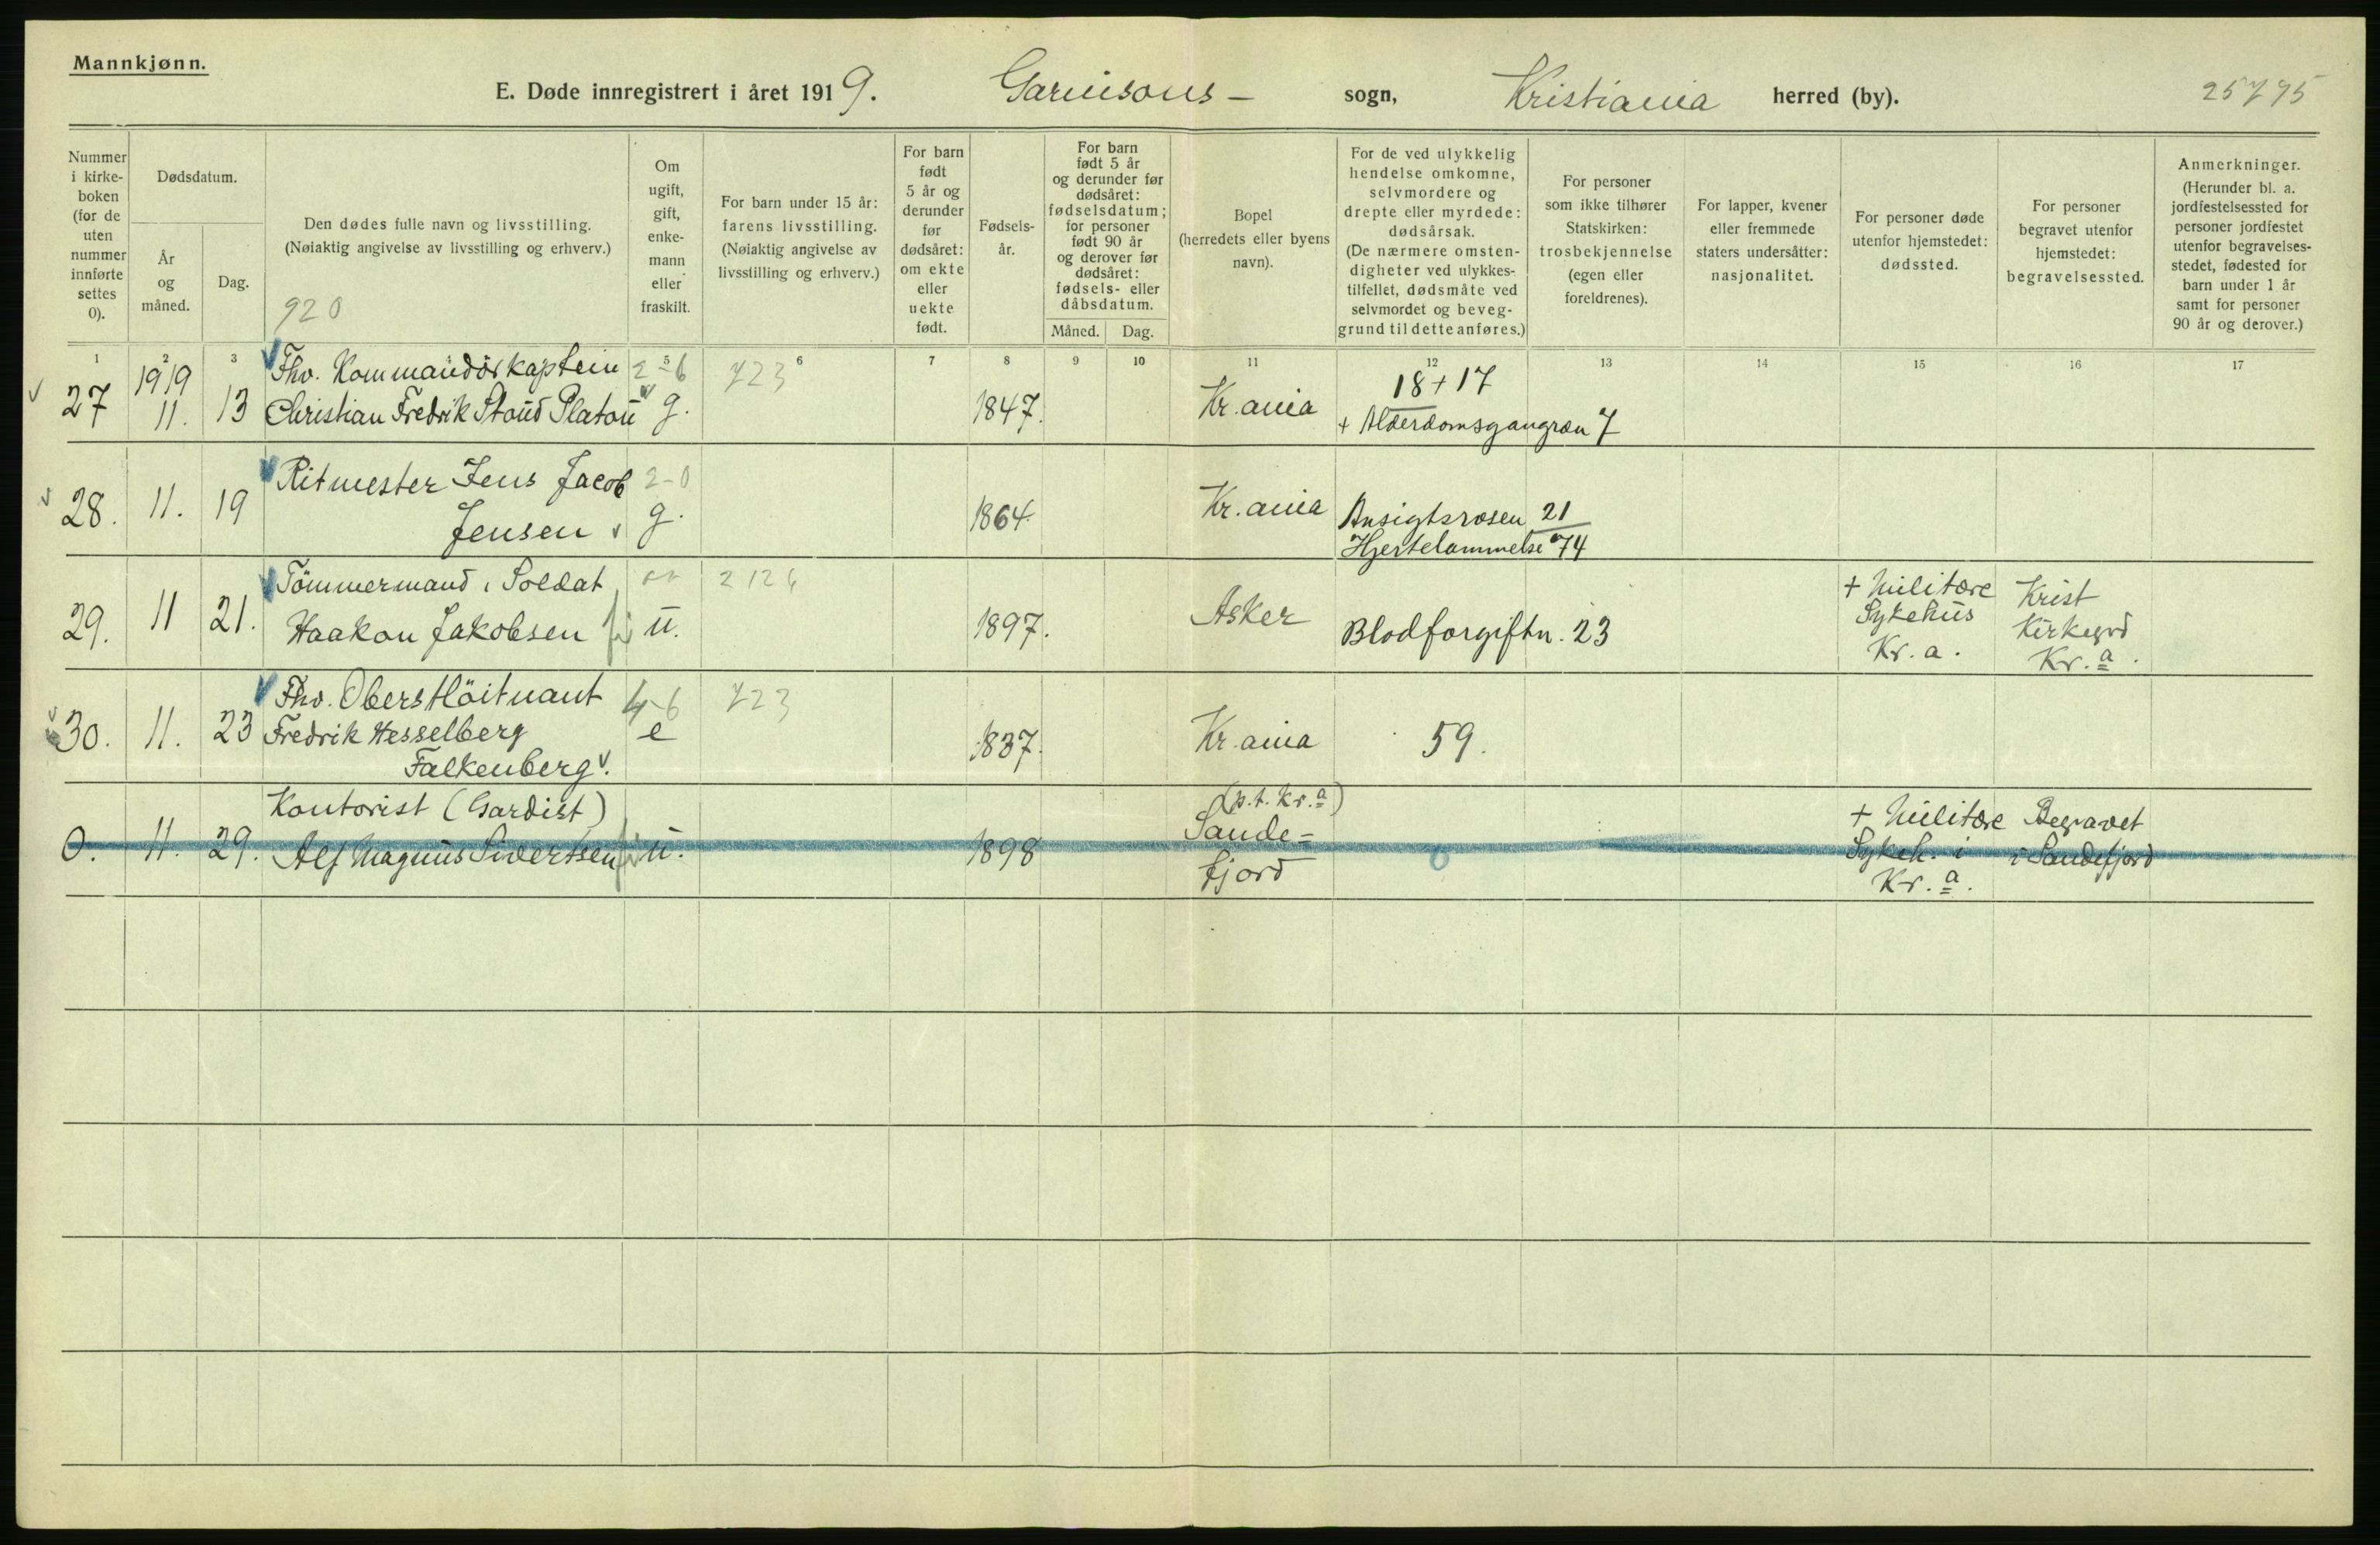 Mannkjønn.
E. Døde innregistrert i året 1919. Garnisons- sogn, Kristiania herred (by). 25795
Nummer i kirke-boken (for de uten nummer innførte settes 0).
Dødsdatum.
År og måned.
Dag.
Den dødes fulle navn og livsstilling.
(Nøiaktig angivelse av livsstilling og erhverv.)
920
Om ugift, gift, enke-mann eller fraskilt.
For barn under 15 år: farens livsstilling. (Nøiaktig angivelse av livsstilling og erhverv.)
For barn født 5 år og derunder før dødsåret: om ekte eller uekte født.
Fødsels-år.
For barn født 5 år og derunder før dødsåret: fødselsdatum; for personer født 90 år og derover før dødsåret: fødsels- eller dåbsdatum.
Måned. Dag.
Bopel (herredets eller byens navn).
For de ved ulykkelig hendelse omkomne, selvmordere og drepte eller myrdede: dødsårsak. (De nærmere omsten-digheter ved ulykkes-tilfellet, dødsmåte ved selvmordet og beveg-grund til dette anføres.)
For personer som ikke tilhører Statskirken: trosbekjennelse (egen eller foreldrenes).
For lapper, kvener eller fremmede staters undersåtter: nasjonalitet.
For personer døde utenfor hjemstedet: dødssted.
For personer begravet utenfor hjemstedet: begravelsessted.
Anmerkninger. (Herunder bl. a. jordfestelsessted for personer jordfestet utenfor begravelses-stedet, fødested for barn under 1 år samt for personer 90 år og derover.)
1 2 3 5 6 7 8 9 10 11 12 13 14 15 16 17
1919 Fhv. Kommandörkaptein 2-6 723 18+17
27 11. 13 Christian Fredrik Stoud Platou g. 1847. Kr.ania + Alderdomsgangræn 7
Ritmester Jens Jacob 2-0
28. 11. 19 Jensen g. 1864. Kr.ania Ansigtsrosen 21
Hjertelammelse 74
Tömmermand, Soldat 2126 + Militære Krist
29. 11 21. Haakon Jakobsen u. 1897. Asker Blodforgiftn. 23 Sykehus Kirkegrd
Kr. a. Kr.a.
Fhv. Oberstlöitnant 4-6 723
30. 11. 23 Fredrik Hesselberg e 1837. Kr.ania 59.
Falkenberg.
Kontorist (Gardist) (p.t. Kr.a) + Militære Begravet
0. 11. 29. Alf Magnus Sivertsen u. 1898 Sande= 0 Sykeh. i i Sandefjord
fjord Kr.a.